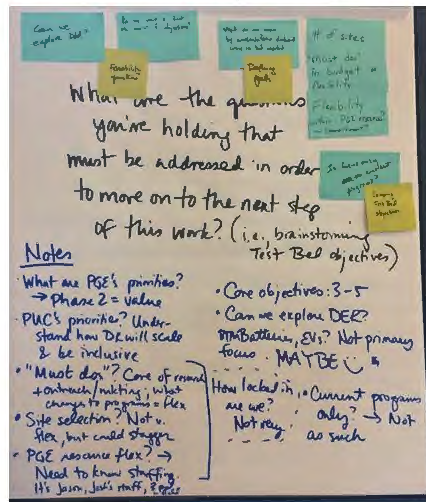 Can we
explore DER?
Feasibility
question
Defining
goals
# of sites
"Must dos"
in budget
flexibility
Flexibility
within PGE
What are the questions
you're holding that
must be addressed in order
to move on to the next step
of this work? (i.e., brainstorming
Test Bed objectives)
Test Bed
objectives
Notes
· What are PGE's priorities?
→ Phase 2 = value
· PUC's priorities? Under-
stand how DR will scale
& be inclusive
· "Must dos"? Core of
+ outreach/mkting; what
changes to programs = flex
· Site selection? Not v.
flex, but could stagger
· PGE resource flex? →
Need to know staffing.
It's Jason, Josh's staff,
· Core objectives: 3-5
· Can we explore DER?
Batteries, EVs? Not primary
focus. MAYBE
How locked in
are we?
Not very.
· Current programs
only? → Not
as such